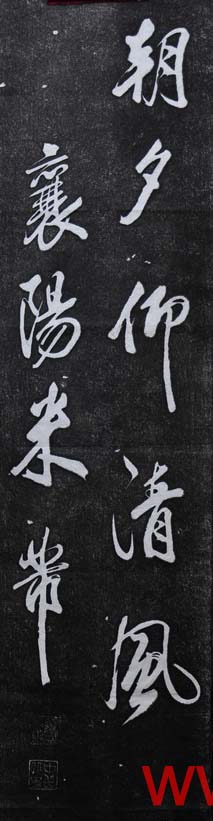 朝夕仰清風
襄陽米芾